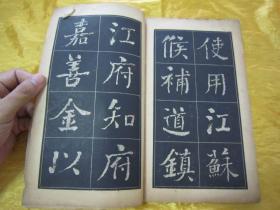 使用江蘇
候補道鎮
江府知府
嘉善金以